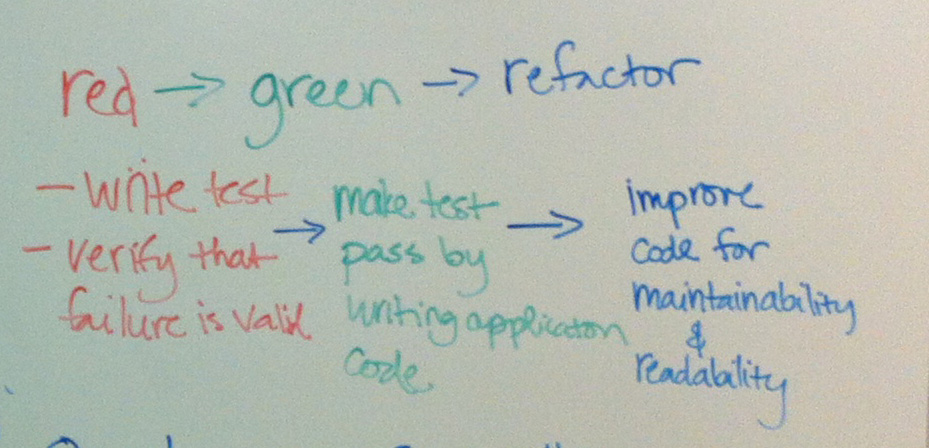 red → green → refactor
- write test
- verify that
failure is valid
→
make test
pass by
writing application
code
→
improve
code for
maintainability
&
readability